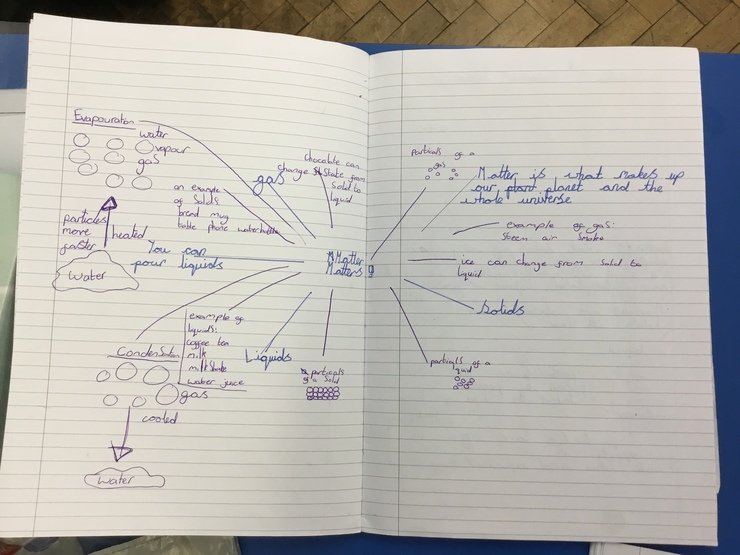 Evapouration
water
vapour
gas
particles
move
faster
heated
water
an example
of solids
bread mug
table phone water bottle
gas
chocolate can
change state from
solid to
liquid
You can
pour liquids
Matter
Matters
example of
liquids:
coffee tea
milk
milkshake
water juice
Condensation
gas
cooled
water
Liquids
particals
of a solid
particals of a
gas
Matter is what makes up
our planet and the
whole universe
example of gas:
Steem air Smoke
ice can change from solid to
liquid
Solids
particals of a
liquid